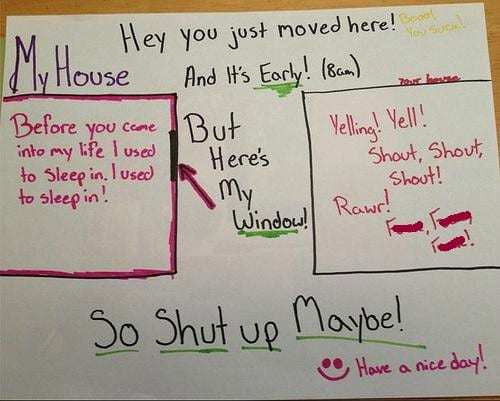 Hey you just moved here!
Booo!
You Suck!
My House
And It's Early! (8am)
Your house
Before you came
into my life I used
to sleep in. I used
to sleep in!
But
Here's
My
Window!
Yelling! Yell!
Shout, Shout,
Shout!
Rawr!
F
F
F
So Shut up Maybe!
Have a nice day!